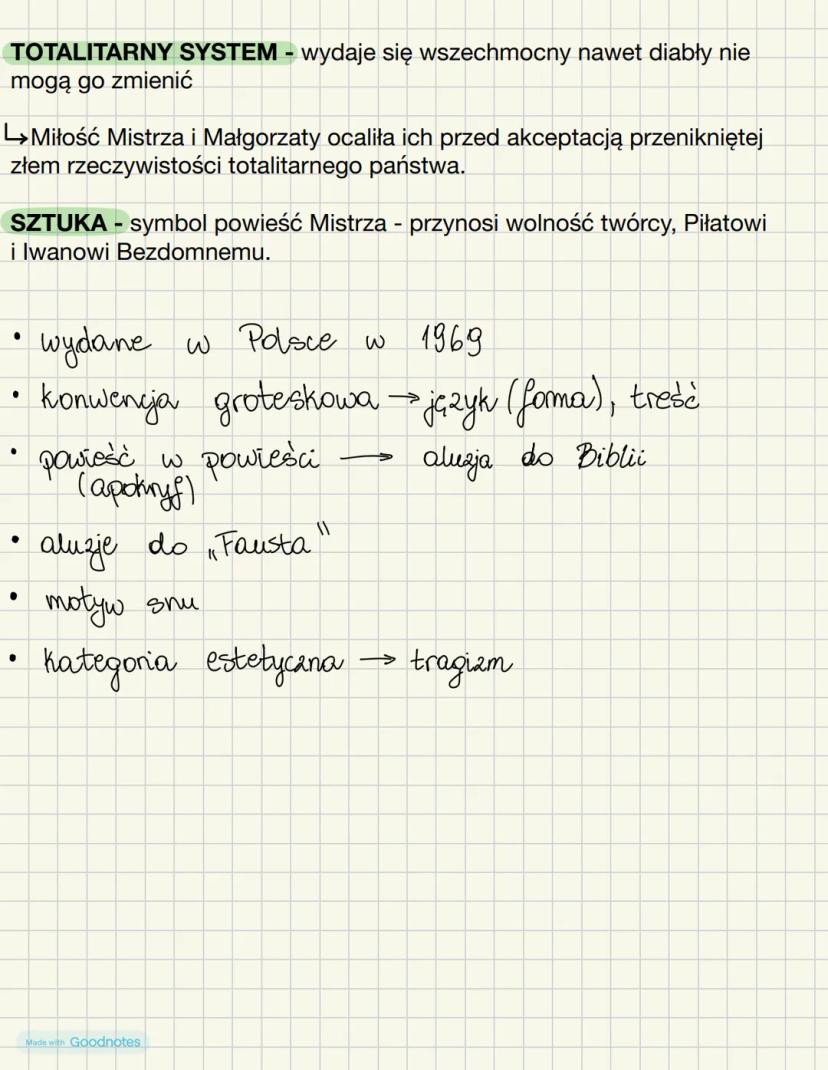 TOTALITARNY SYSTEM - wydaje się wszechmocny nawet diabły nie
mogą go zmienić
↳Miłość Mistrza i Małgorzaty ocaliła ich przed akceptacją przenikniętej
złem rzeczywistości totalitarnego państwa.
SZTUKA - symbol powieść Mistrza - przynosi wolność twórcy, Piłatowi
i Iwanowi Bezdomnemu.
• wydane w Polsce w 1969
• konwencja groteskowa → język (foma), treść
• powieść w powieści → aluzja do Biblii
(apokryf)
• aluzje do „Fausta"
• motyw snu
• kategoria estetyczna → tragizm
Made with Goodnotes